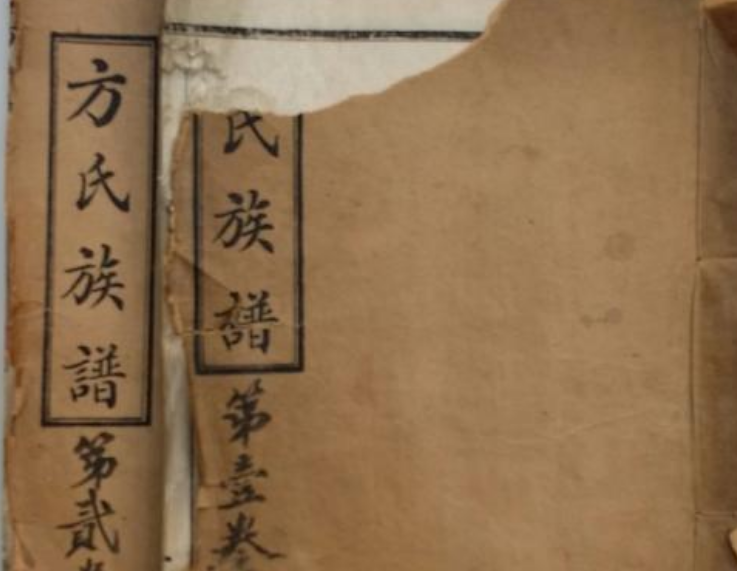 氏族譜
第壹卷
方氏族譜
第貳